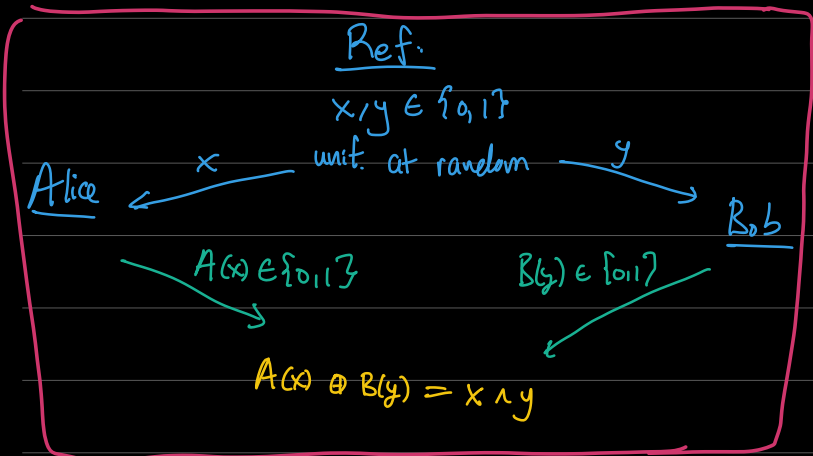 Ref.
x, y ∈ {0,1}
unif. at random
x
y
Alice
Bob
A(x) ∈ {0,1}
B(y) ∈ {0,1}
A(x) ⊕ B(y) = x ∧ y